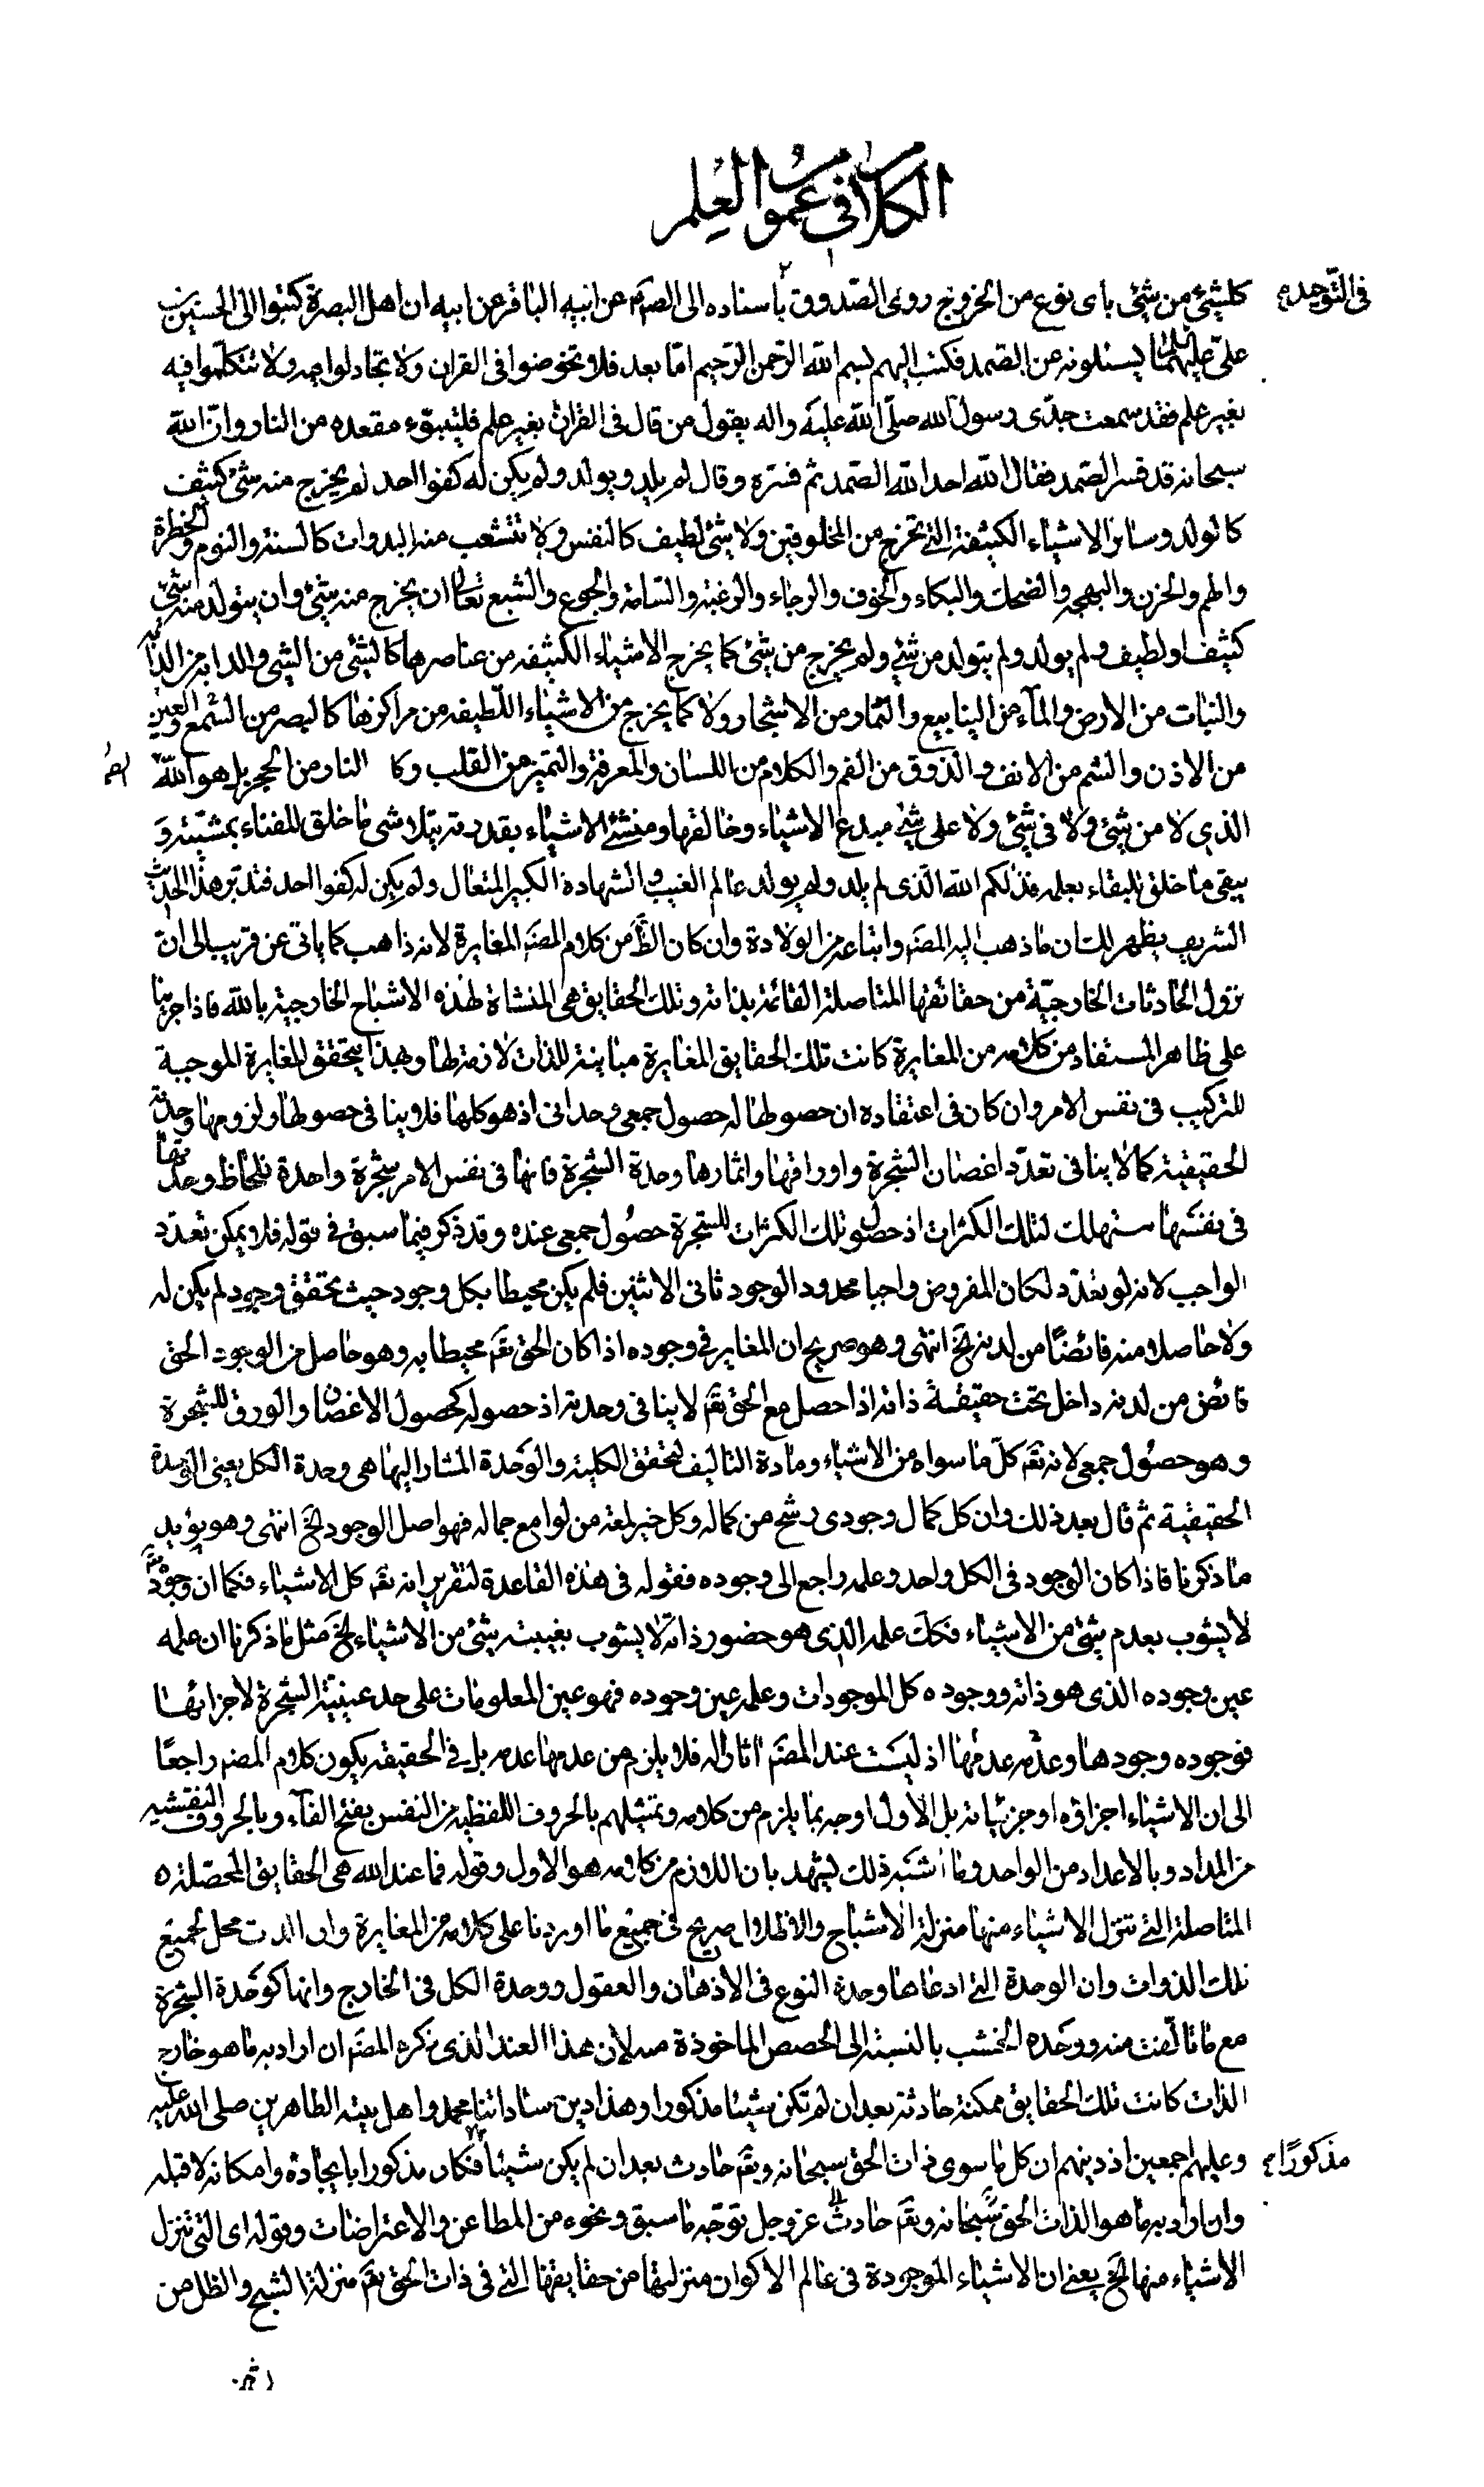 الكلام فى عموم العلم
فى التوحيد
كلشئ من شئ باى نوع من الخروج روى الصدوق باسناده الى الصم عن ابيه الباقر عن ابيه ان اهل البصرة كتبوا الى الحسين بن
على عليهما يسئلونه عن الصمد فكتب اليهم بسم الله الرحمن الرحيم اما بعد فلا تخوضوا فى القران ولا تجادلوا فيه ولا تتكلموا فيه
بغير علم فقد سمعت جدى رسول الله صلى الله عليه واله يقول من قال فى القران بغير علم فليتبوء مقعده من النار وان الله
سبحانه قد فسر الصمد فقال الله احد الله الصمد ثم فسره وقال لم يلد ويولد ولم يكن له كفوا احد لم يخرج منه شئ كثيف
كالولد وسائر الاشياء الكثيفة التى تخرج من المخلوقين ولا شئ لطيف كالنفس ولا تتشعب منه البدوات كالسنة والنوم والخطرة
والهم والحزن والبهجة والضحك والبكاء والخوف والرجاء والرغبة والسامة والجوع والشبع تعالى ان يخرج منه شئ وان يتولد منه شئ
كثيف او لطيف ولم يولد ولم يتولد من شئ ولم يخرج من شئ كما يخرج الاشياء الكثيفة من عناصرها كالشئ من الشئ والدابة من الدابة
والنبات من الارض والمآء من الينابيع والثمار من الاشجار ولا كما يخرج من الاشياء اللطيفة من مراكزها كالبصر من السمع والعين
من الاذن والشم من الانف والذوق من الفم والكلام من اللسان والمعرفة والتميز من القلب وكا النار من الحجر بل هو الله
الذى لا من شئ ولا فى شئ ولا على شئ مبدع الاشياء وخالقها ومنشئ الاشياء بقدرته يتلاشى ما خلق للفناء بمشيته و
يبقى ما خلق للبقاء بعلمه فذلكم الله الذى لم يلد ولم يولد عالم الغيب والشهادة الكبير المتعال ولم يكن له كفوا احد فتدبر هذا الحديث
الشريف يظهر لك ان ما ذهب اليه المصم واتباعه من الولادة وان كان الظ من كلام المصم المغايرة لانه ذاهب كما ياتى عن قريب الى ان
نزول الحادثات الخارجية من حقائقها المتاصلة القائمة بذاته وتلك الحقايق هى المنشاة لهذه الاشباح الخارجية بالله فاذا جرينا
على ظاهر المستفاد من كلامه من المغايرة كانت تلك الحقايق المغايرة مباينة للذات لا نضرطها وبهذا يتحقق المغايرة الموجبة
للتركيب فى نفس الامر وان كان فى اعتقاده ان حصولها له حصول جمعى وحدانى اذ هو كلها فلا ينافى حصولها ولزومها وحدته
الحقيقية كما لا ينافى تعدد اغصان الشجرة واوراقها واثمارها وحدة الشجرة فانها فى نفس الامر شجرة واحدة فلحاظ وحدتها
فى نفسها مستهلك لتلك الكثرات اذ حصول تلك الكثرات للشجرة حصول جمعى عنده وقد ذكر فيما سبق فى قوله فلا يمكن تعدد
الواجب لانه لو تعدد لكان المفروض واجبا محدود الوجود ثانى الاثنين فلم يكن محيطا بكل وجود حيث تحقق وجود لم يكن له
ولا حاصلا منه فائضًا من لدنه الخ انتهى وهو صريح ان المغاير فى وجوده اذا كان الحق تقم محيطا به وهو حاصل من الوجود الحق
فائض من لدنه داخل تحت حقيقة ذاته اذا حصل مع الحق تقم لا ينافى وحدته اذ حصوله كحصول الاغصان والورق للشجرة
وهو حصول جمعى لانه تقم كل ما سواه من الاشياء ومادة التاليف لتحقق الكلية والوحدة المشار اليها هى وحدة الكل يعنى الوحدة
الحقيقية ثم قال بعد ذلك وان كل كمال وجودى رشح من كماله وكل خير لمعة من لوامع جماله فهو اصل الوجود الخ انتهى وهو يؤيد
ما ذكرنا فاذا كان الوجود فى الكل واحد وعلمه راجع الى وجوده فقوله فى هذه القاعدة لتقرير انه تقم كل الاشياء فكما ان وجوده
لا يشوب بعدم شئ من الاشياء فكك علمه الذى هو حضور ذاته لا يشوب بغيبة شئ من الاشياء الخ مثل ما ذكرنا ان علمه
عين وجوده الذى هو ذاته ووجوده كل الموجودات وعلمه عين وجوده فهو عين المعلومات على حد عينية الشجرة لاجزائها
فوجوده وجودها وعدمه عدمها اذ ليست عند المصم اثارا له فلا يلزم من عدمها عدمه بل فى الحقيقة يكون كلام المصم راجعًا
الى ان الاشياء اجزاؤه او جزئياته بل الاول اوجه بما يلزم من كلامه وتمثيلهم بالحروف اللفظية من النفس بفتح الفآء وبالحروف النقشية
من المداد وبالاعداد من الواحد وما اشبه ذلك يشهد بان اللازم من كلامه هو الاول وقوله فما عند الله هى الحقايق المحصلة
المتاصلة التى تنزل الاشياء منها منزلة الاشباح والاظلال صريح فى جميع ما اوردنا على كلامه من المغايرة وان الذت محل لجميع
تلك الذوات وان الوحدة التى ادعاها وحدة النوع فى الاذهان والعقول ووحدة الكل فى الخارج وانها كوحدة الشجرة
مع ما تالفت منه ووحده الخشب بالنسبة الى الحصص الماخوذة منه لان هذا العند الذى ذكره المصم ان اراد به ما هو خارج
الذات كانت تلك الحقايق ممكنة حادثة بعد ان لم تكن شيئا مذكورا وهذا دين ساداتنا محمد واهل بيته الطاهرين صلى الله عليه
وعليهم اجمعين اذ دينهم ان كل ما سوى ذات الحق سبحانه وتقم حادث بعد ان لم يكن شيئا فكان مذكورا بايجاده وامكانه لا قبله
مذكورًا
وان اراد به ما هو الذات الحق سبحانه وتقم حادث عز وجل توجه ما سبق ونحوه من المطاعن والاعتراضات وقوله اى التى تنزل
الاشياء منها الخ يعنى ان الاشياء الموجودة فى عالم الاكوان منزلتها من حقايقها التى فى ذات الحق تقم منزلة الشبح والظل من